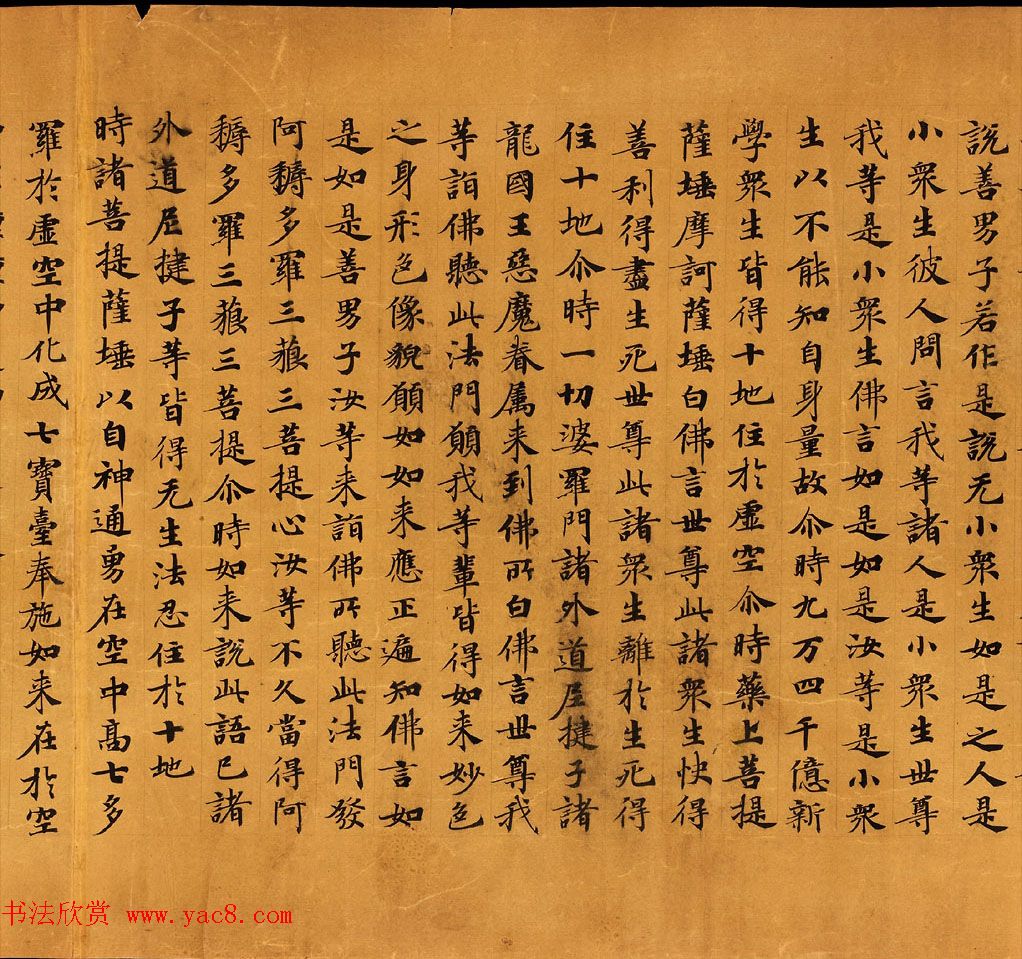 說善男子若作是說无小衆生如是之人是
小衆生彼人問言我等諸人是小衆生世尊
我等是小衆生佛言如是如是汝等是小衆
生以不能知自身量故尒時九万四千億新
學衆生皆得十地住於虛空尒時藥上菩提
薩埵摩訶薩埵白佛言世尊此諸衆生快得
善利得盡生死世尊此諸衆生離於生死得
住十地尒時一切婆羅門諸外道尼揵子諸
龍國王惡魔眷属来到佛所白佛言世尊我
等詣佛聽此法門願我等輩皆得如来妙色
之身形色像貌願如如来應正遍知佛言如
是如是善男子汝等来詣佛所聽此法門發
阿耨多羅三藐三菩提心汝等不久當得阿
耨多羅三藐三菩提尒時如来說此語已諸
外道尼揵子等皆得无生法忍住於十地
時諸菩提薩埵以自神通勇在空中高七多
羅於虛空中化成七寶臺奉施如来在於空
书法欣赏 www.yac8.com